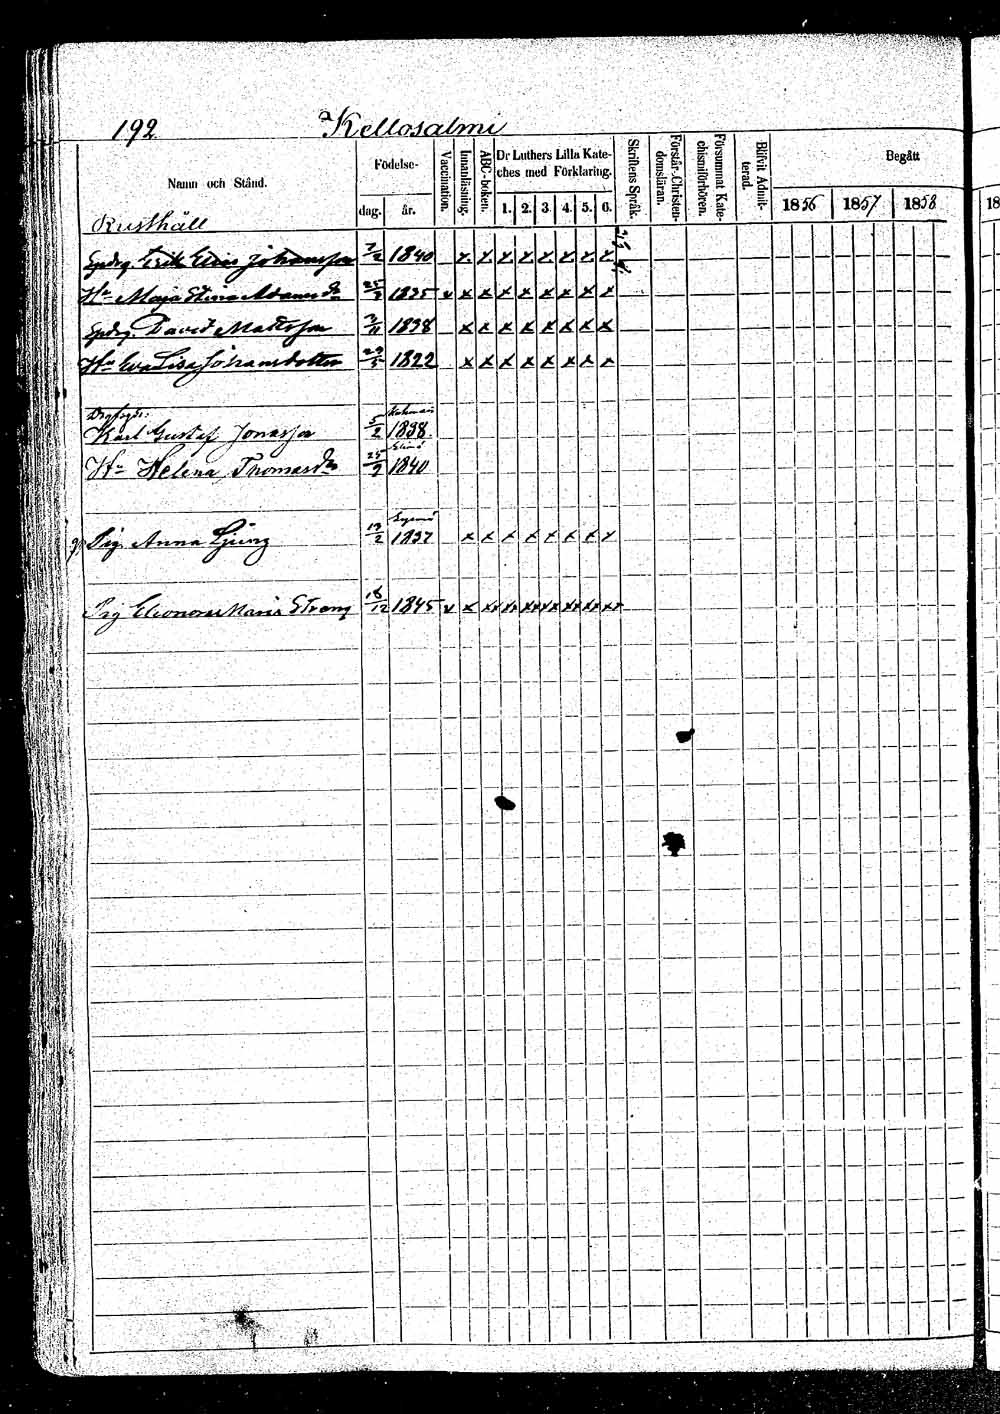 192 Kellosalmi
Namn och Stånd.
Födelse-
dag. år.
Vaccination.
Innanläsning.
ABC-boken.
Dr Luthers Lilla Kate-
ches med Förklaring.
1. 2. 3. 4. 5. 6.
Skriftens Språk.
Förstår Christen-
domsläran.
Försummat Kate-
chismiförhören.
Blifvit Admit-
terad.
Begått
1856 1857 1858
18
Rusthåll
Erik Elias Johansson 7/2 1840 x x x x x x x x
Hu Maja Stina Adamsdr 1835 v x x x x x x x x
David Mattsson 1838 x x x x x x x x
Hu Eva Lisa Johansdotter 29/5 1822 x x x x x x x x
Karl Gustaf Jonasson 5/2 1838
Elimä
Hu Helena Thomasdr 25/9 1840
Pig. Anna Ljung 19/2 1837 x x x x x x x x
Pig Eleonora Maria Strang 18/12 1845 v x xx xx xx xx xx xx xx